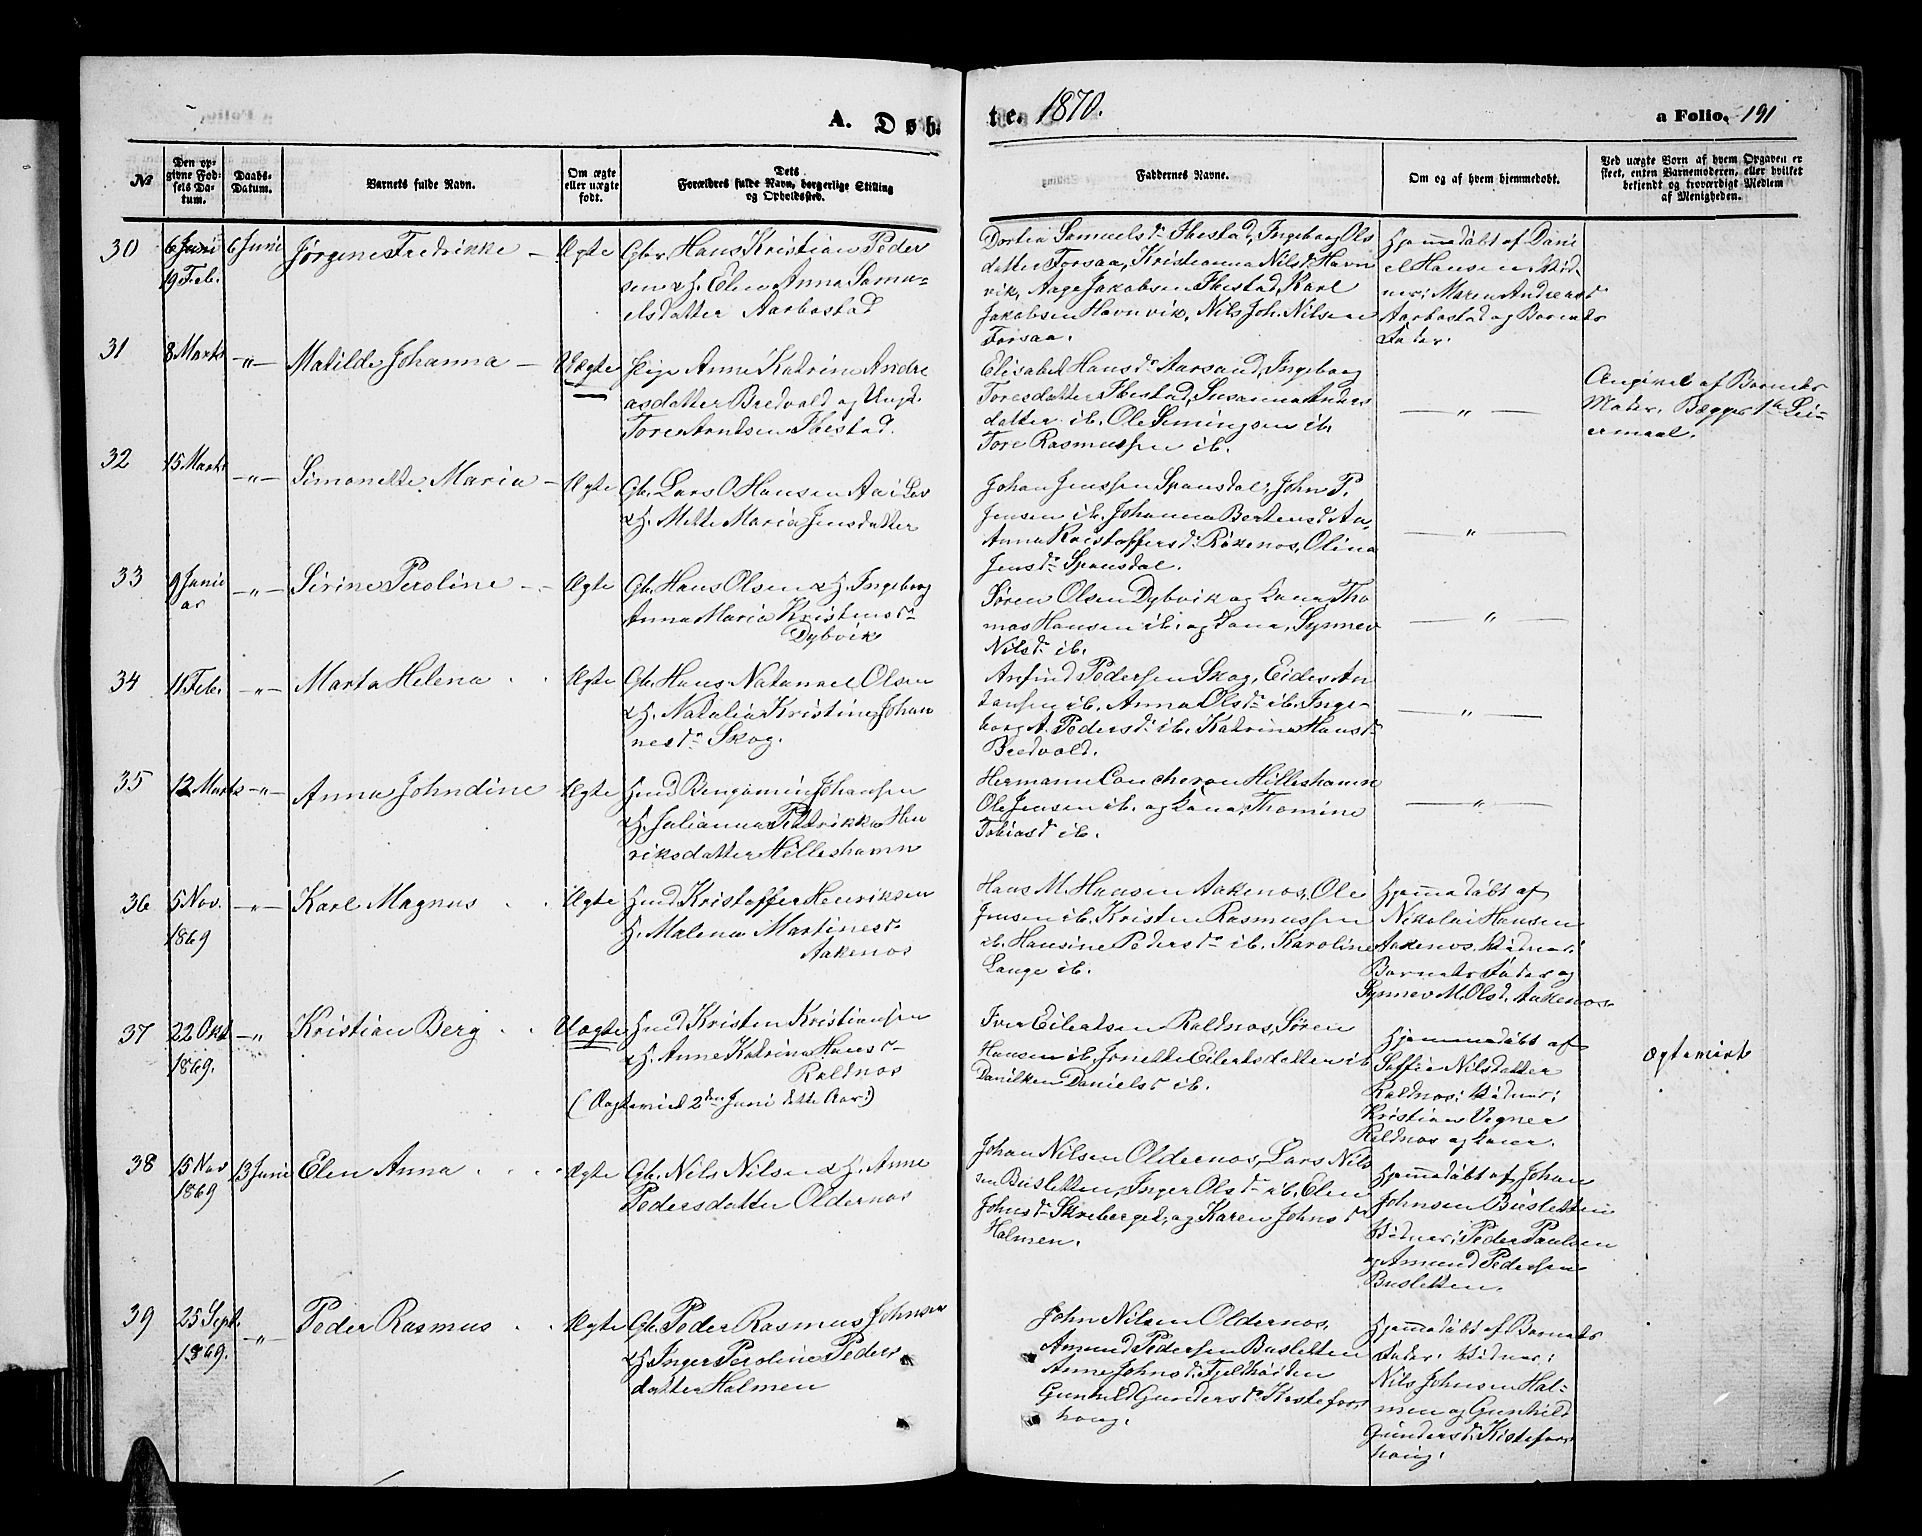 A. Døb.
te. 1870.
a Folio. 191
№
Den op-
givne Fød-
sels Da-
tum.
Daabs-
Datum.
Barnets fulde Navn.
Om ægte
eller uægte
født.
Dets
Forældres fulde Navn, borgerlige Stilling
og Opholdssted.
Faddernes Navne.
Om og af hvem hjemmedøbt.
Ved uægte Born af hvem Opgaven er
skeet, enten Barnemoderen, eller hvilket
bekjendt og troværdigt Medlem
af Menigheden.
30
6 Juni
19 Feb.
6 Juni
Jørgine Fredrikke
Ægte
Gbr. Hans Kristian Peder
sen & H. Elen Anna Samu-
elsdatter Aarbostad
Dortea Samuelsdr. Ibestad, Ingeborg Ols
datter Forsaa, Kristianna Nilsdr. Havn
vik, Aage Jakobsen Ibestad, Karl
Jakobsen Havnvik, Nils Joh. Nilsen
Forsaa.
Hjemmedøbt af Dani
el Hansen. Vid-
ner: Maren Andreasd
Aarbostad og Barnets
Fader.
31
8 Marts
-"-
Matilde Johanna
Uægte
Pige Anne Katrine Andre
asdatter Bredvold og Ungk.
Tore Arntsen Ibestad.
Elisabet Hansdr. Aarsand, Ingeborg
Toresdatter Ibestad, Susanna Anders
datter ib. Ole Simingsen ib.
Tore Rasmussen ib.
-"-
Angivet af Barnets
Moder. Begges 1ste Lei-
ermaal.
32
15 Marts
-"-
Simonette Maria
Ægte
Gb. Lars O Hansen Aa i Lev
& H. Mette Maria Jensdatter
Johan Jenssen Spansdal, John P.
Jensen ib. Johanna Bertensd Aa,
Anna Kristoffersdr. Røkenes, Olina
Jensdr. Spansdal.
-"-
33
9 Janu
ar
-"-
Sirine Peroline
Ægte
Gb. Hans Olsen & H. Ingeborg
Anna Maria Kristensdr
Dybvik
Søren Olsen Dybvik og Kona, Tho
mas Hansen ib. og Kona, Synnev
Nilsdr ib.
-"-
34
11 Feb.
-"-
Marta Helena
Ægte
Gb. Hans Natanael Olsen
& H. Natalia Kristine Johan
nesdr Skog.
Anfind Pedersen Skog, Eides An
tonsen ib. Anna Olsdr ib. Inge-
borg A. Pedersdr ib. Katrina Hansdr
Bredvold.
-"-
35
12 Marts
-"-
Anna Johndine
Ægte
Hmd Benjamin Johansen
& H. Julianna Petrikka Hen
riksdatter Hilleshamn
Hermann Coucheron Hilleshamn
Ole Jensen ib. og Kona, Thomine
Tobiasd ib.
-"-
36
5 Nov.
1869
-"-
Karl Magnus
Ægte
Hmd Kristoffer Henriksen
H. Malena Martinesdr
Aakenes
Hans M. Hansen Aakenos, Ole
Jensen ib. Kristen Rasmussen
ib. Hansine Pedersdr ib. Karoline
Lange ib.
Hjemmedøbt af
Nikolai Hansen
Aakenos. Vidner:
Barnets Fader og
Synnev M. Olsd. Aakenos
37
22 Okt
1869.
-"-
Kristian Berg
Uægte
Hmd Kristen Kristiansen
& H. Anne Katrina Hansdr
Roldnos
(Ægteviet 2den Juni dette Aar.)
Iver Eilertsen Roldnos, Søren
Hansen ib. Jonette Eilertsdatter ib
Danilken Danielsd ib.
Hjemmedøbt af
Soffie Nilsdatter
Roldnos; Vidner:
Kristian Vegner
Roldnos og Kona.
Ægteviet
38
15 Nov
1869
13 Juni
Elen Anna
Ægte
Gb. Nils Nilsen & H. Anne
Pedersdatter Oldernos
Johan Nilsen Oldernos, Lars Nils
sen Busletten, Inger Olsdr ib. Elen
Johnsdr Skreberget, og Karen Johnsdr
Holmen.
Hjemmedøbt af Johan
Johnsen Busletten
Vidner: Peder Paulsen
og Amund Pedersen
Busletten.
39
25 Sept.
1869.
-"-
Peder Rasmus
Ægte
Gb. Peder Rasmus Johnsen
& H. Inger Peroline Peders
datter Holmen
John Nilsen Oldernos,
Amund Pedersen Busletten
Anne Johnsdr.
Gunhild Gundersdr
houg.
Hjemmedøbt af Barnets
Fader. Vidner:
Nils Johnsen Hol-
men og Gunhild
Gundersdr
houg.